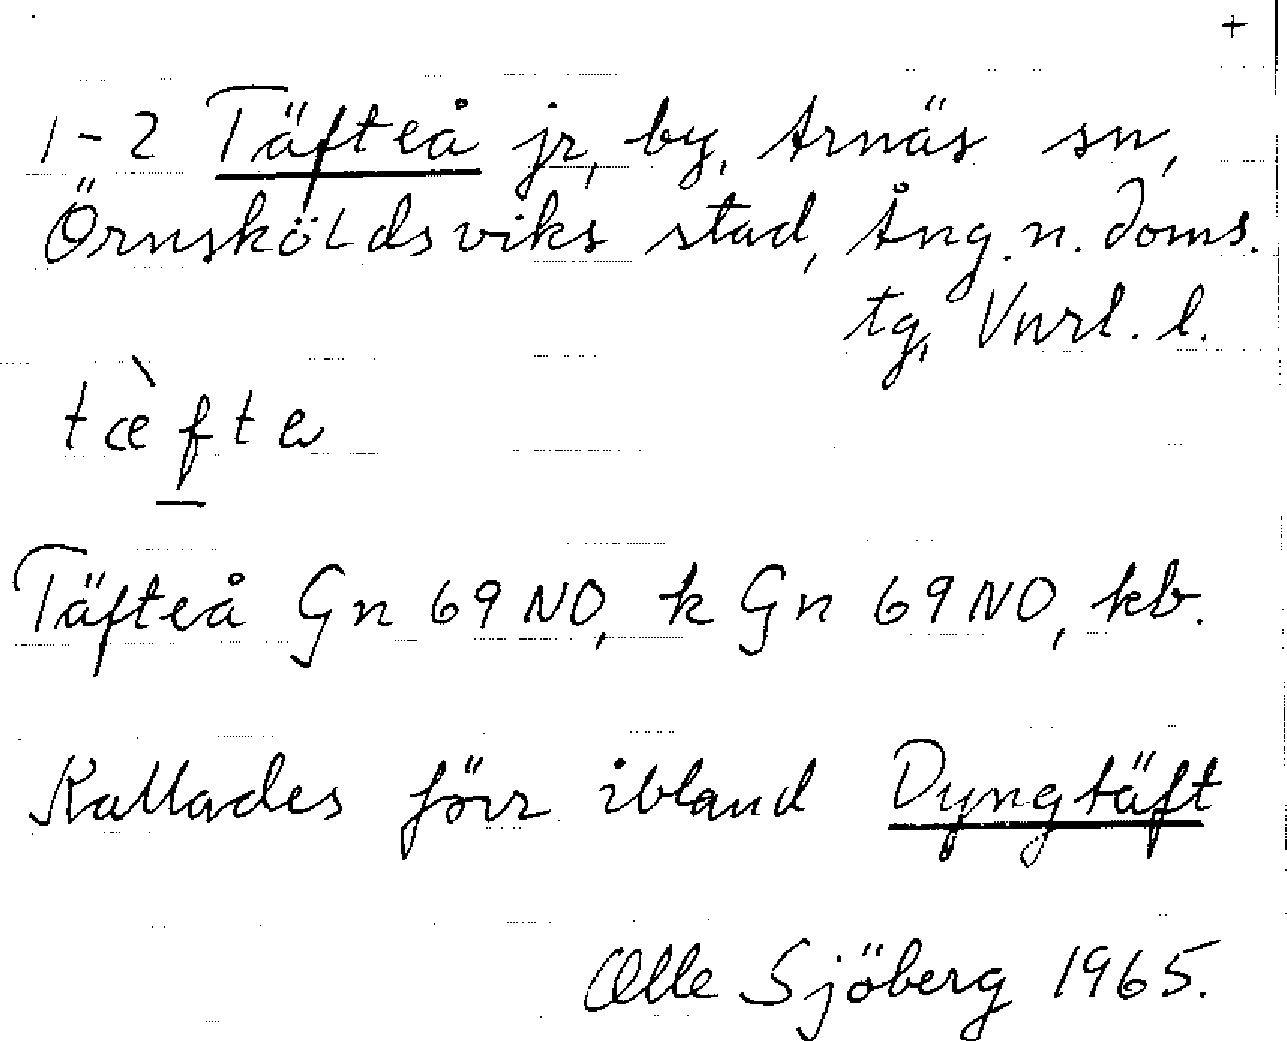 +
1-2 Täfteå jr, by, Arnäs sn,
Örnsköldsviks stad, Ång. n. doms.
tg, Vnrl. l.
tæ̀fta
Täfteå Gn 69 NO, k Gn 69 NO, kb.
Kallades förr ibland Dyngtäft
Olle Sjöberg 1965.